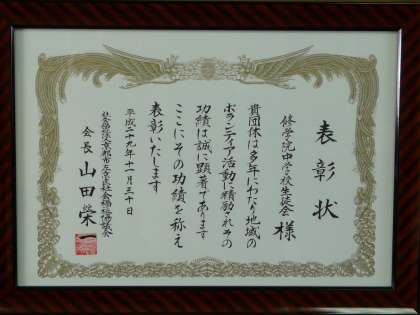 表彰状
修学院中学校生徒会 様
貴団体は多年にわたり地域の
ボランティア活動に精励されその
功績は誠に顕著であります
ここにその功績を称え
表彰いたします
平成二十九年十一月三十日
社会福祉法人京都市左京区社会福祉協議会
会長 山田榮一